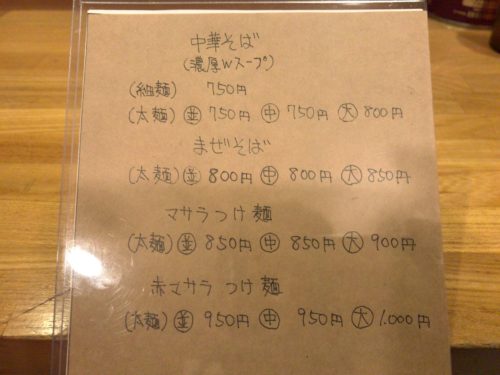 中華そば
(濃厚Wスープ)
(細麺) 750円
(太麺) ㊂ 750円 ㊥ 750円 ㊅ 800円
まぜそば
(太麺) 並 800円 ㊥ 800円 大 850円
マサラつけ麺
(太麺) 並 850円 ㊥ 850円 大 900円
赤マサラつけ麺
(太麺) 並 950円 ㊥ 950円 大 1.000円